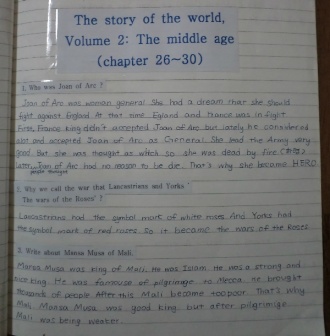 The story of the world,
Volume 2: The middle age
(chapter 26~30)
1. Who was Joan of Arc ?
Joan of Arc was woman general. She had a dream that she should
fight against England. At that time England and France was in fight.
First, France king didn't accepted Joan of Arc but lately he considered
alot and accepted Joan of Arc as General. She lead the Army very
good. But she was thought as witch so she was dead by fire.
Later, Joan of Arc had no reason to be die. That's why she became HERO
people thought
2. Why we call the war that Lancastrians and Yorks '
The wars of the Roses' ?
Lancastrians had the symbol mark of white roses. And Yorks had
the symbol mark of red roses. So it became the wars of the Roses.
3. Write about Mansa Musa of Mali.
Mansa Musa was king of Mali. He was Islam. He was a strong and
nice king. He was famouse of pilgrimage to Mecca. He brought
thousands of people. After this Mali became too poor. That's why
Mali, Mansa Musa was good king, but after pilgrimige
Mali was being weaker.